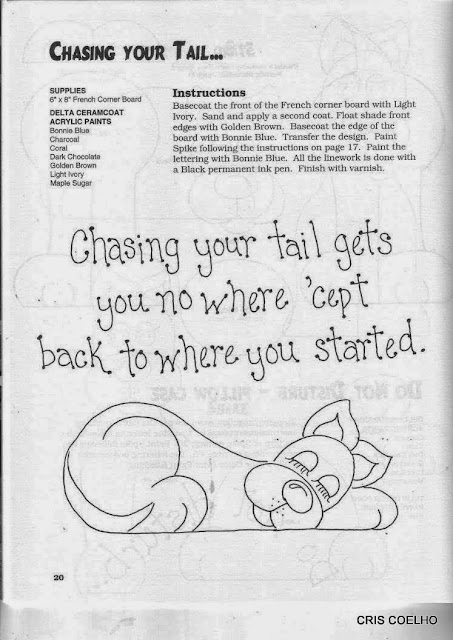 CHASING YOUR TAIL...
SUPPLIES
6" x 8" French Corner Board
DELTA CERAMCOAT
ACRYLIC PAINTS
Bonnie Blue
Charcoal
Coral
Dark Chocolate
Golden Brown
Light Ivory
Maple Sugar
Instructions
Basecoat the front of the French corner board with Light
Ivory. Sand and apply a second coat. Float shade front
edges with Golden Brown. Basecoat the edge of the
board with Bonnie Blue. Transfer the design. Paint
Spike following the instructions on page 17. Paint the
lettering with Bonnie Blue. All the linework is done with
a Black permanent ink pen. Finish with varnish.
Chasing your tail gets
you no where 'cept
back to where you started.
DO NOT DISTURB - PILLOW CASE
20
CRIS COELHO